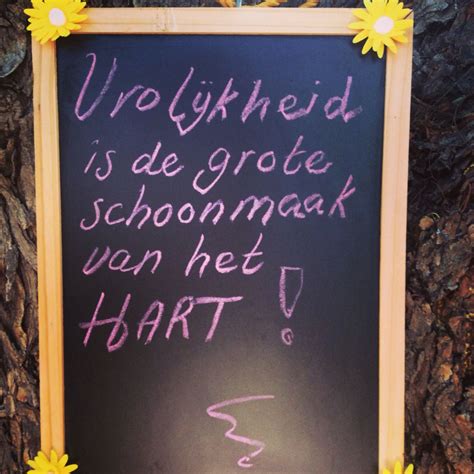 Vrolijkheid
is de grote
schoonmaak
van het
HART !